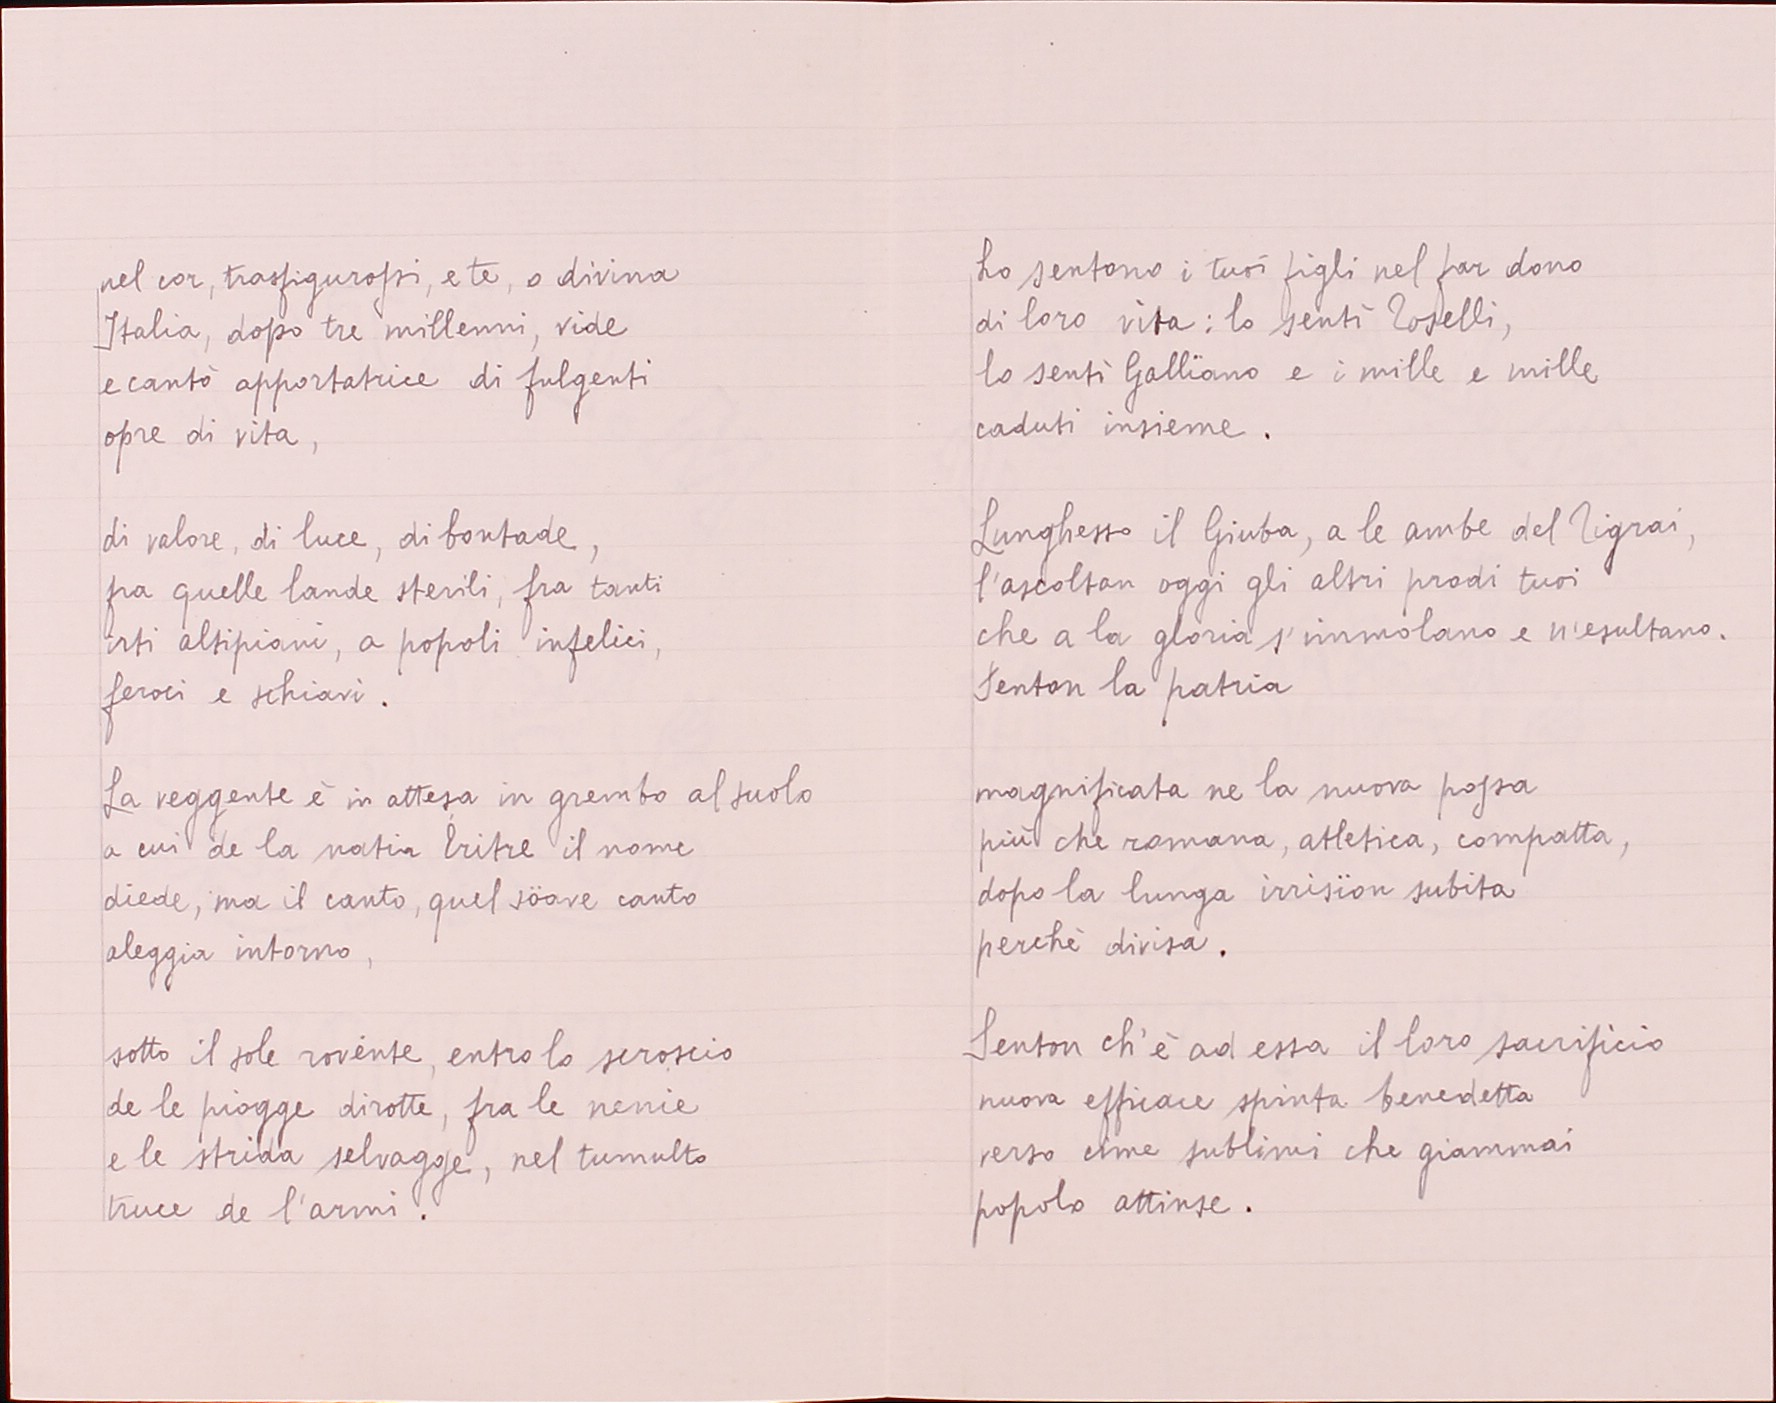 nel cor, trasfigurossi, e te, o divina
Italia, dopo tre millenni, vide
e cantò apportatrice di fulgenti
opre di vita,
di valore, di luce, di bontade,
fra quelle lande sterili, fra tanti
irti altipiani, a popoli infelici,
feroci e schiavi.
La veggente è in attesa in grembo al suolo
a cui de la natia Eritre il nome
diede, ma il canto, quel söave canto
aleggia intorno,
sotto il sole rovente, entro lo scroscio
de le piogge dirotte, fra le nenie
e le strida selvagge, nel tumulto
truce de l'armi.
Lo sentono i tuoi figli nel far dono
di loro vita: lo sentì Toselli,
lo sentì Gallïano e i mille e mille
caduti insieme.
Lunghesso il Giuba, a le ambe del Tigrai,
l'ascoltan oggi gli altri prodi tuoi
che a la gloria s'immolano e n'esultano.
Senton la patria
magnificata ne la nuova possa
più che romana, atletica, compatta,
dopo la lunga irrisïon subita
perchè divisa.
Senton ch'è ad essa il loro sacrificio
nuova efficace spinta benedetta
verso cime sublimi che giammai
popolo attinse.